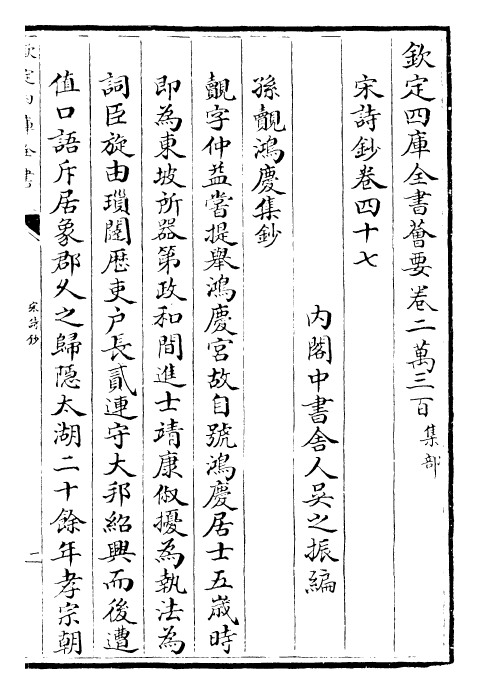 欽定四庫全書薈要卷二萬三百集部
宋詩鈔卷四十七
內閣中書舍人吳之振編
孫覿鴻慶集鈔
覿字仲益嘗提舉鴻慶宮故自號鴻慶居士五歲時
即為東坡所器第政和間進士靖康俶擾為執法為
詞臣旋由瑣闥歴吏户長貳連守大邦紹興而後遭
值口語斥居象郡久之歸隠太湖二十餘年孝宗朝
欽定四庫全書
宋詩鈔